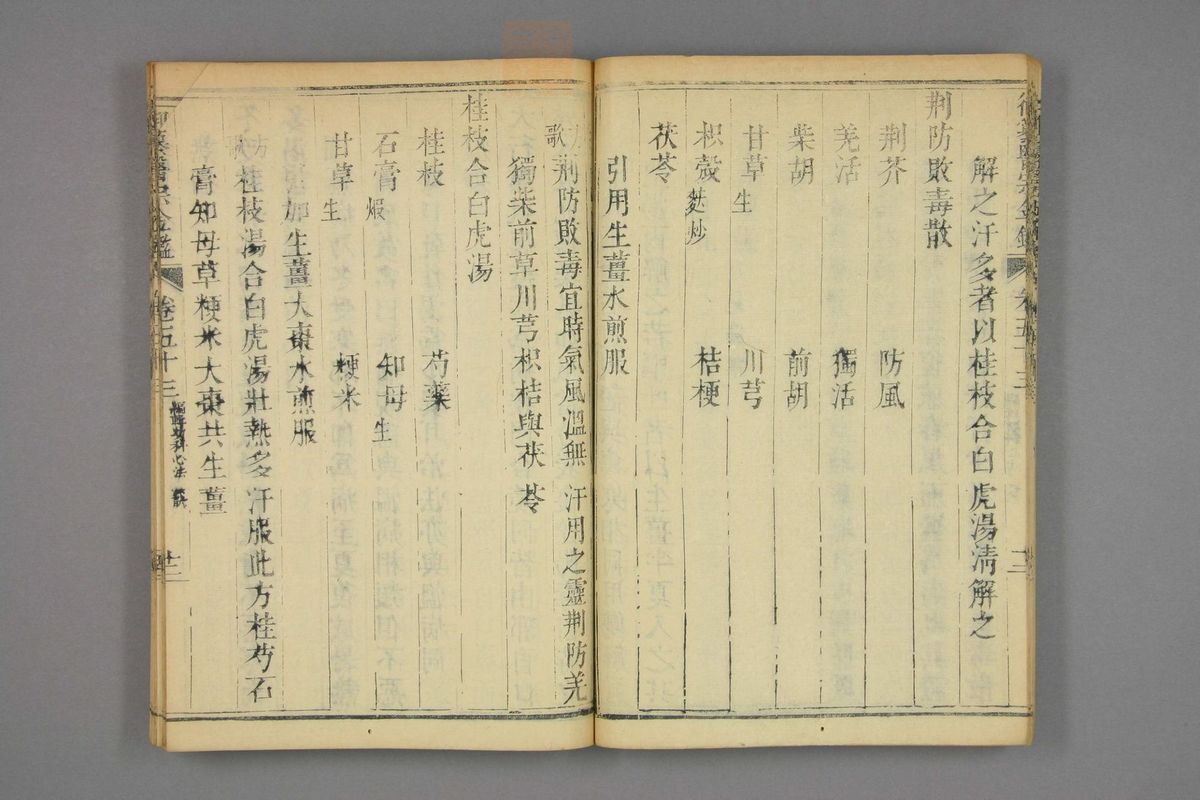 解之汗多者以桂枝合白虎湯清解之
荆防敗毒散
荆芥 防風
羌活 獨活
柴胡 前胡
甘草生 川芎
枳殼麩炒 桔梗
茯苓
引用生薑水煎服
方歌 荆防敗毒宜時氣風溫無汗用之靈荆防羌
獨柴前草川芎枳桔與茯苓
桂枝合白虎湯
桂枝 芍藥
石膏煅 知母生
甘草生 粳米
加生薑大棗水煎服
方歌 桂枝湯合白虎湯壯熱多汗服此方桂芍石
膏知母草粳米大棗共生薑
御纂醫宗金鑑 卷五十三